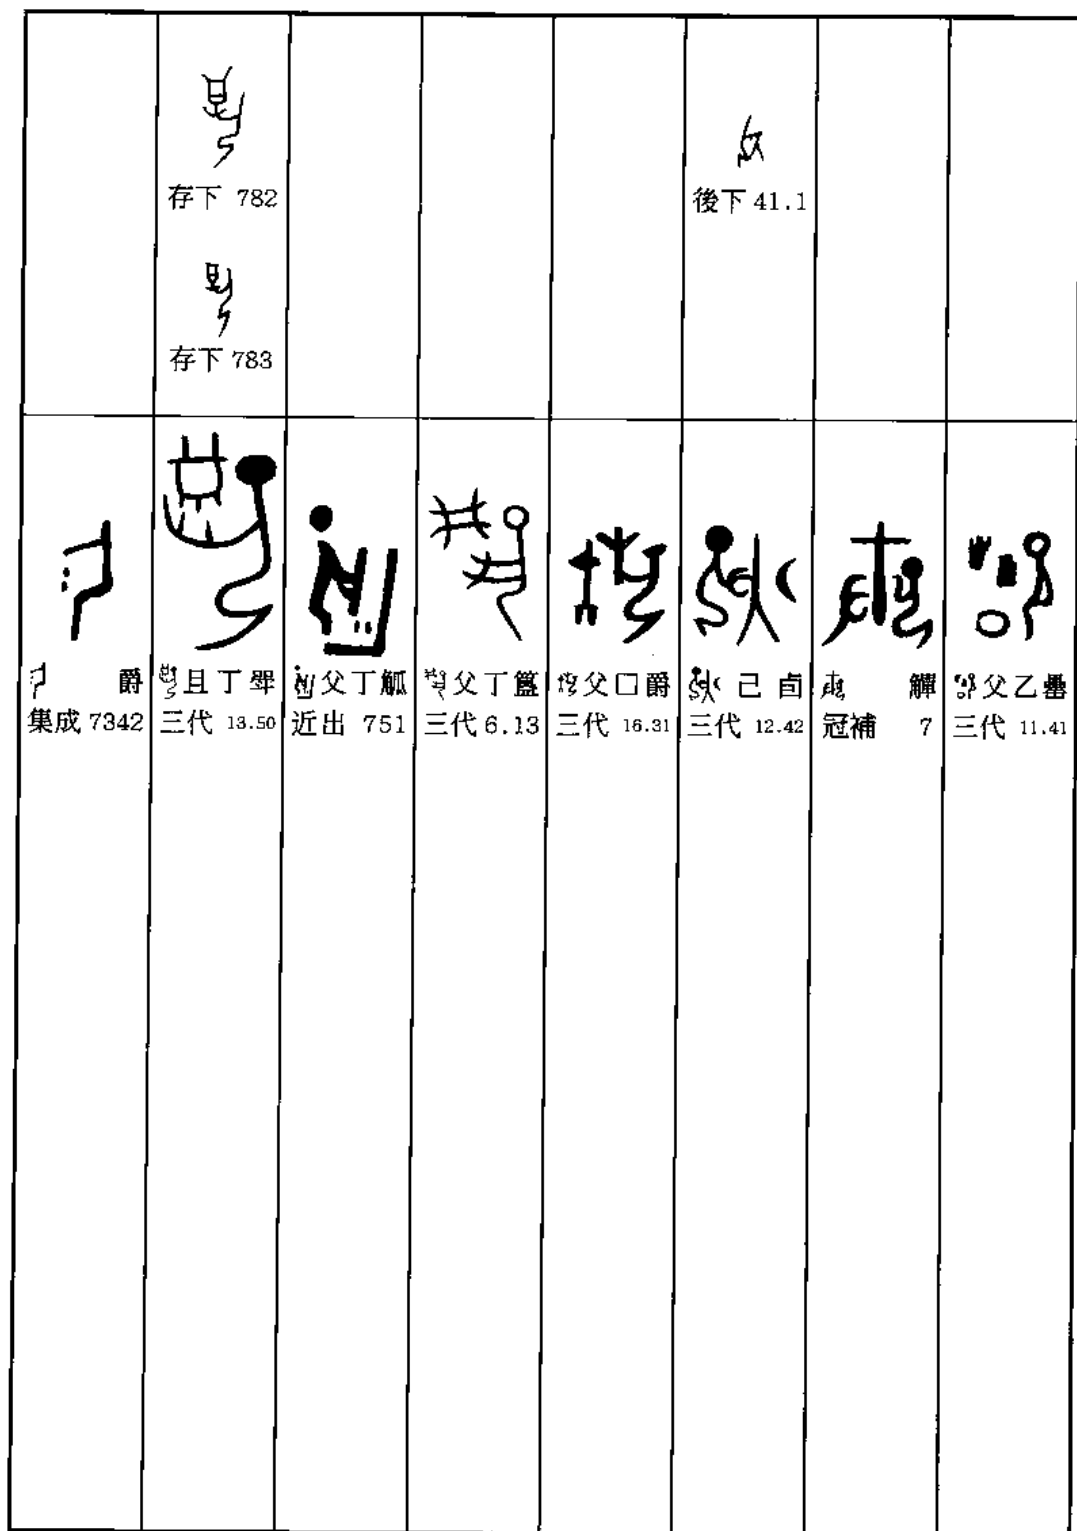 存下 782
存下 783
後下 41.1
爵
集成 7342
且丁斝
三代 13.50
父丁觚
近出 751
父丁簋
三代 6.13
父口爵
三代 16.31
己卣
三代 12.42
觶
冠補 7
父乙罍
三代 11.41